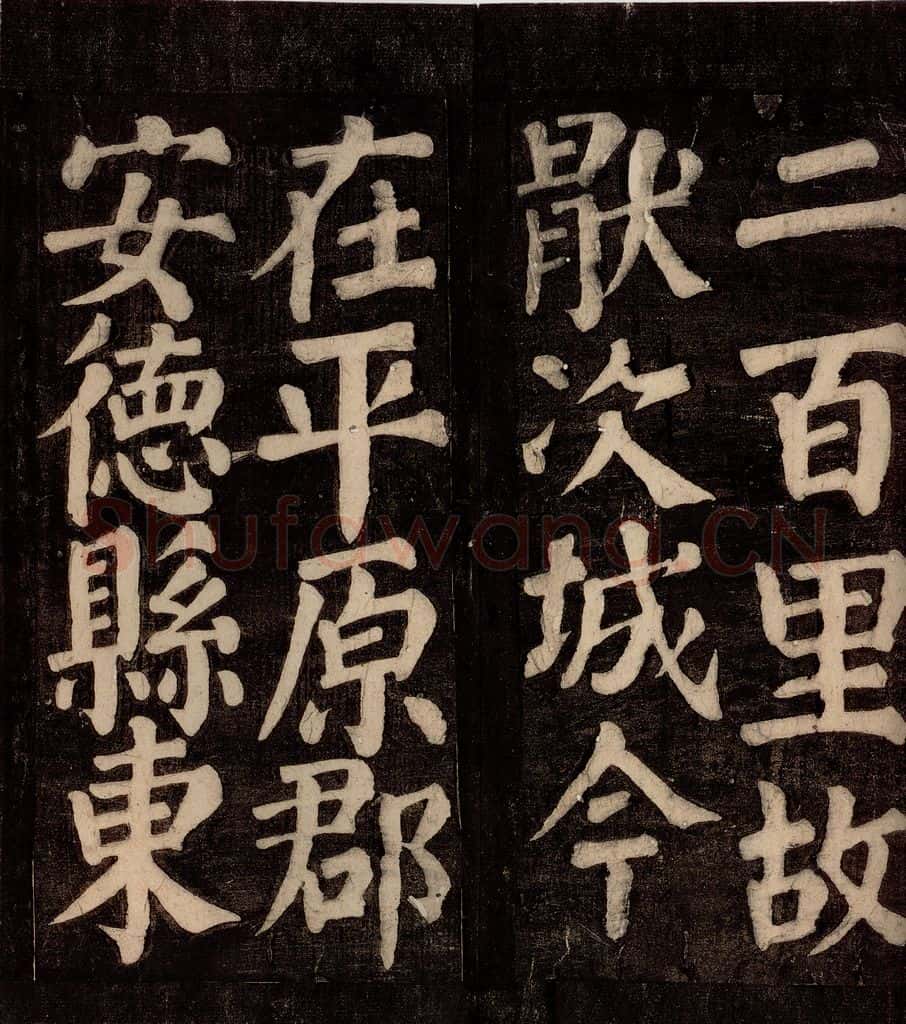 二百里故
猒次城今
在平原郡
安德縣東
Shufawang.CN